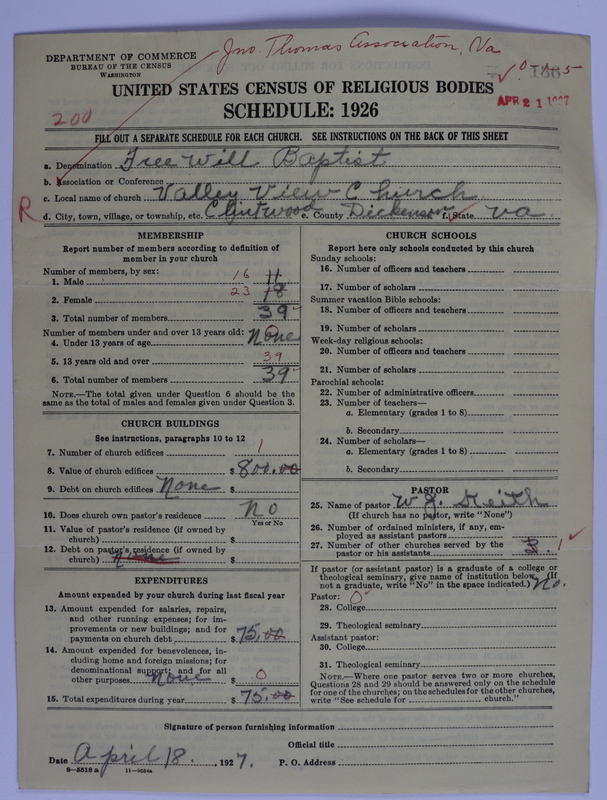 Jno. Thomas Association, Va
DEPARTMENT OF COMMERCE
BUREAU OF THE CENSUS
WASHINGTON
UNITED STATES CENSUS OF RELIGIOUS BODIES
APR 21 1927
SCHEDULE: 1926
200
FILL OUT A SEPARATE SCHEDULE FOR EACH CHURCH. SEE INSTRUCTIONS ON THE BACK OF THIS SHEET
a. Denomination Free Will Baptist
b. Association or Conference
c. Local name of church Valley View Church
R
d. City, town, village, or township, etc. Clintwood e. County Dickenson f. State Va.
MEMBERSHIP
Report number of members according to definition of member in your church
Number of members, by sex:
1. Male 16 11
2. Female 23 18
3. Total number of members 39
Number of members under and over 13 years old:
4. Under 13 years of age None
5. 13 years old and over 39
6. Total number of members 39
NOTE.—The total given under Question 6 should be the same as the total of males and females given under Question 3.
CHURCH BUILDINGS
See instructions, paragraphs 10 to 12
7. Number of church edifices 1
8. Value of church edifices $ 800.00
9. Debt on church edifices None $
10. Does church own pastor's residence No
Yes or No
11. Value of pastor's residence (if owned by church) $
12. Debt on pastor's residence (if owned by church) None $
EXPENDITURES
Amount expended by your church during last fiscal year
13. Amount expended for salaries, repairs, and other running expenses; for improvements or new buildings; and for payments on church debt $ 75.00
14. Amount expended for benevolences, including home and foreign missions; for denominational support; and for all other purposes None $ 0
15. Total expenditures during year $ 75.00
CHURCH SCHOOLS
Report here only schools conducted by this church
Sunday schools:
16. Number of officers and teachers
17. Number of scholars
Summer vacation Bible schools:
18. Number of officers and teachers
19. Number of scholars
Week-day religious schools:
20. Number of officers and teachers
21. Number of scholars
Parochial schools:
22. Number of administrative officers
23. Number of teachers—
a. Elementary (grades 1 to 8)
b. Secondary
24. Number of scholars—
a. Elementary (grades 1 to 8)
b. Secondary
PASTOR
25. Name of pastor W. J. Keith
(If church has no pastor, write "None")
26. Number of ordained ministers, if any, employed as assistant pastors
27. Number of other churches served by the pastor or his assistants 1
If pastor (or assistant pastor) is a graduate of a college or theological seminary, give name of institution below. (If not a graduate, write "No" in the space indicated.) No.
Pastor: 0
28. College
29. Theological seminary
Assistant pastor:
30. College
31. Theological seminary
NOTE.—Where one pastor serves two or more churches, Questions 28 and 29 should be answered only on the schedule for one of the churches; on the schedules for the other churches, write "See schedule for church."
Signature of person furnishing information
Official title
Date April 18. , 1927. P. O. Address
8—5518 a 11—9034a